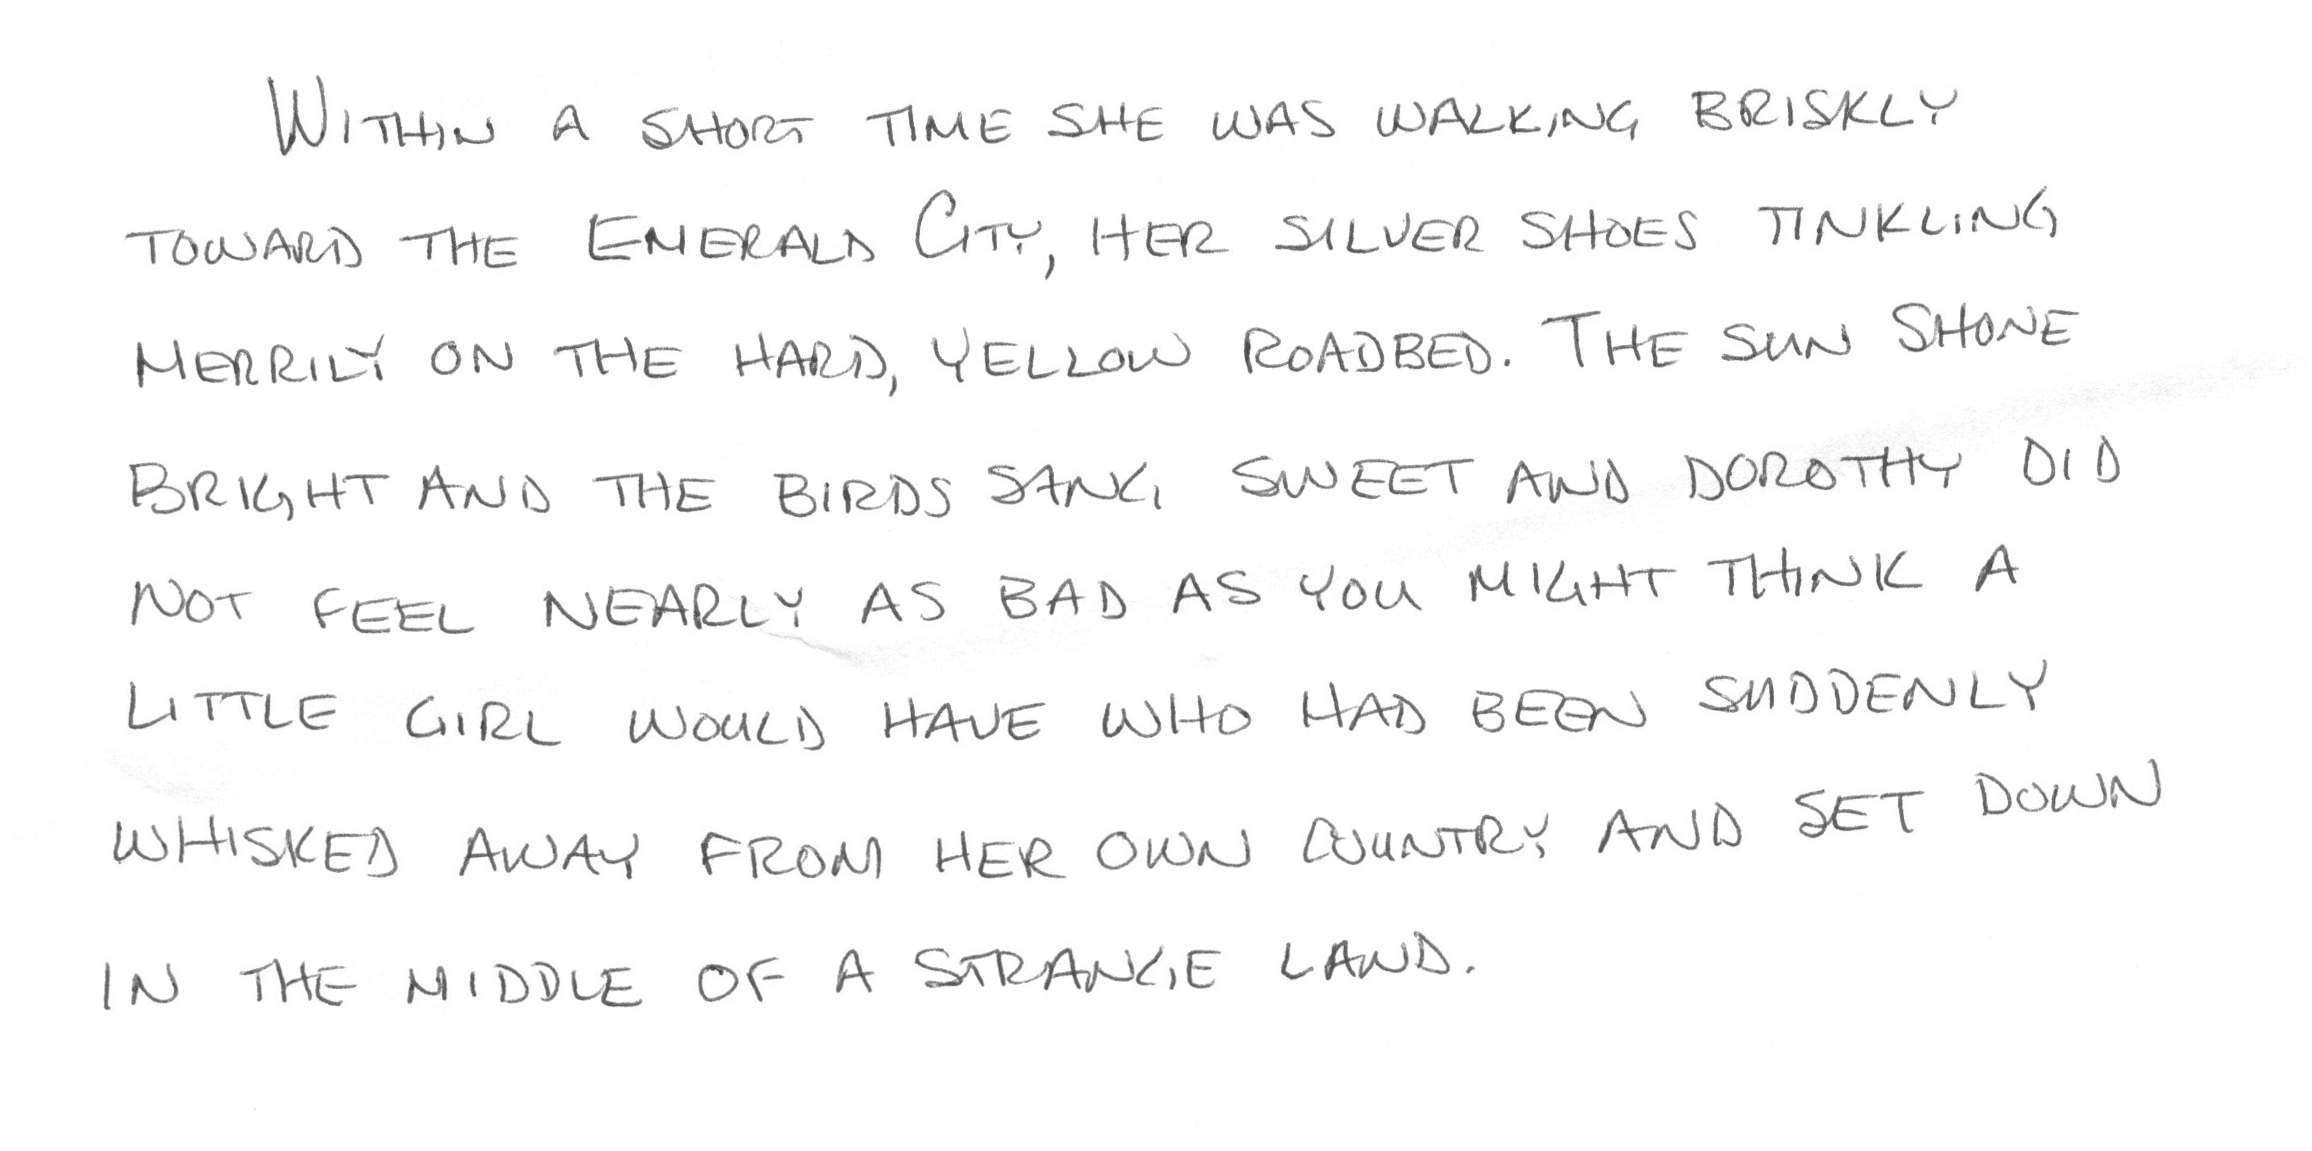 WITHIN A SHORT TIME SHE WAS WALKING BRISKLY
TOWARD THE EMERALD CITY, HER SILVER SHOES TINKLING
MERRILY ON THE HARD, YELLOW ROADBED. THE SUN SHONE
BRIGHT AND THE BIRDS SANG SWEET AND DOROTHY DID
NOT FEEL NEARLY AS BAD AS YOU MIGHT THINK A
LITTLE GIRL WOULD HAVE WHO HAD BEEN SUDDENLY
WHISKED AWAY FROM HER OWN COUNTRY AND SET DOWN
IN THE MIDDLE OF A STRANGE LAND.